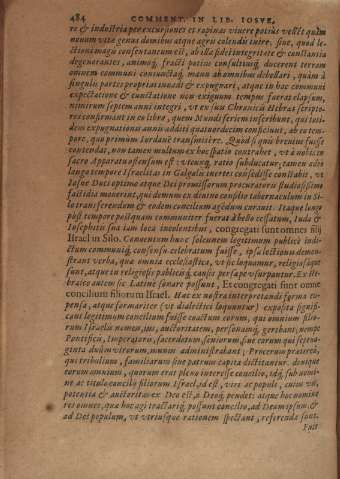 484 COMMENT. IN LIB. IOSVE.
re & industria per excursiones et rapinas viuere potius vellēt quàm
nouum vitæ genus domibus atque agris colendis inire. siue, quod le-
ctioni magis consentaneum est, ab illa fidei integritate & constantia
degenerantes, animoq́; fracti potius consultiusq́; ducerent terram
omnem communi coniunctaq́; manu ab omnibus debellari, quàm à
singulis partes proprias inuadi & expugnari, atque in hac communi
expectatione & cunctatione non exiguum tempus fuerat elapsum,
nimirum septem anni integri, vt ex suis Chronicis Hebræi scripto-
res confirmant in eo libro, quem Mundi seriem inscribunt, qui toti-
dem expugnationis annis additi quatuordecim conficiunt, ab eo tem-
pore, quo primùm Iordanē transmisere. Quod si quis breuius fuisse
contendat, non tamen multum ex hoc spatio contrahet, vt à nobis in
sacro Apparatu ostensum est: vtcunq; ratio subducatur, tamen adeò
longo tempore Israelitas in Galgalis inertes consedisse constabit, vt
Iosue Duci optimo atque Dei promissorum procuratori studiosissimo
fastidia mouerint, qui demum ex diuino consilio tabernaculum in Si-
lo transferendum & eodem concilium agēdum curauit. Itaque longo
post tempore postquam communiter fuerat à bello cessatum, Iuda &
Iosephitis sua iam loca incolentibus, congregati sunt omnes filij
Israel in Silo. Conuentum hunc solennem legitimum publicè indi-
ctum communiq́; consensu celebratum fuisse, ipsa lectionis demon-
strant verba, quæ omnia ecclesiastica, vt sic loquamur, religiosaque
sunt, atque in religiosis publicisq́; causis persæpe vsurpantur. Ex He-
bræico autem sic Latinè sonare possunt, Et congregati sunt omne
concilium filiorum Israel. Hæc ex nostra interpretandi forma ex-
pensa, atque formaliter (vt dialectici loquuntur) exposita signifi-
cant legitimum concilium fuisse coactum eorum, qui omnium filio-
rum Israelis nomen, ius, auctoritatem, personamq́; gerebant, nempe
Pontificis, Imperatoris, sacerdotum, seniorum, siue eorum qui septua-
ginta consultorum munus administrabant; Procerum præterea,
qui tribulium, familiarum siue patrum capita dicebantur. denique
eorum omnium, quorum erat pleno interesse concilio, idq́; sub nomi-
ne ac titulo concilij filiorum Israel, id est, viri ac populi, cuius vis,
potentia & auctoritas ex Deo est, à Deoq́; pendet: atque hoc nomine
res omnes, quæ hoc agi tractariq́; possunt concilio, ad Deum ipsum, &
ad Dei populum, vt vtriusque rationem spectant, referendæ sunt.
Fuit